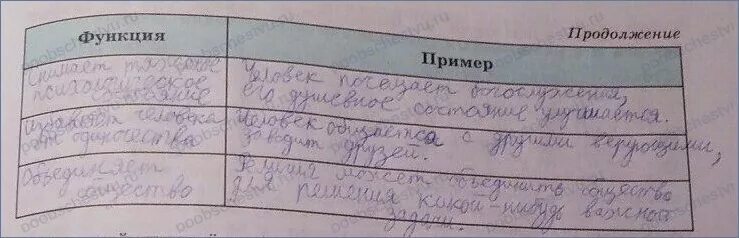 Продолжение
Функция
Пример
Снимает тяжёлое
психологическое
состояние
Человек посещает богослужения,
его душевное состояние улучшается.
человека
от одиночества
Человек общается с другими верующими,
заводит друзей.
Объединяет
общество
Религия может объединить общество
для решения какой-нибудь важной
задачи.